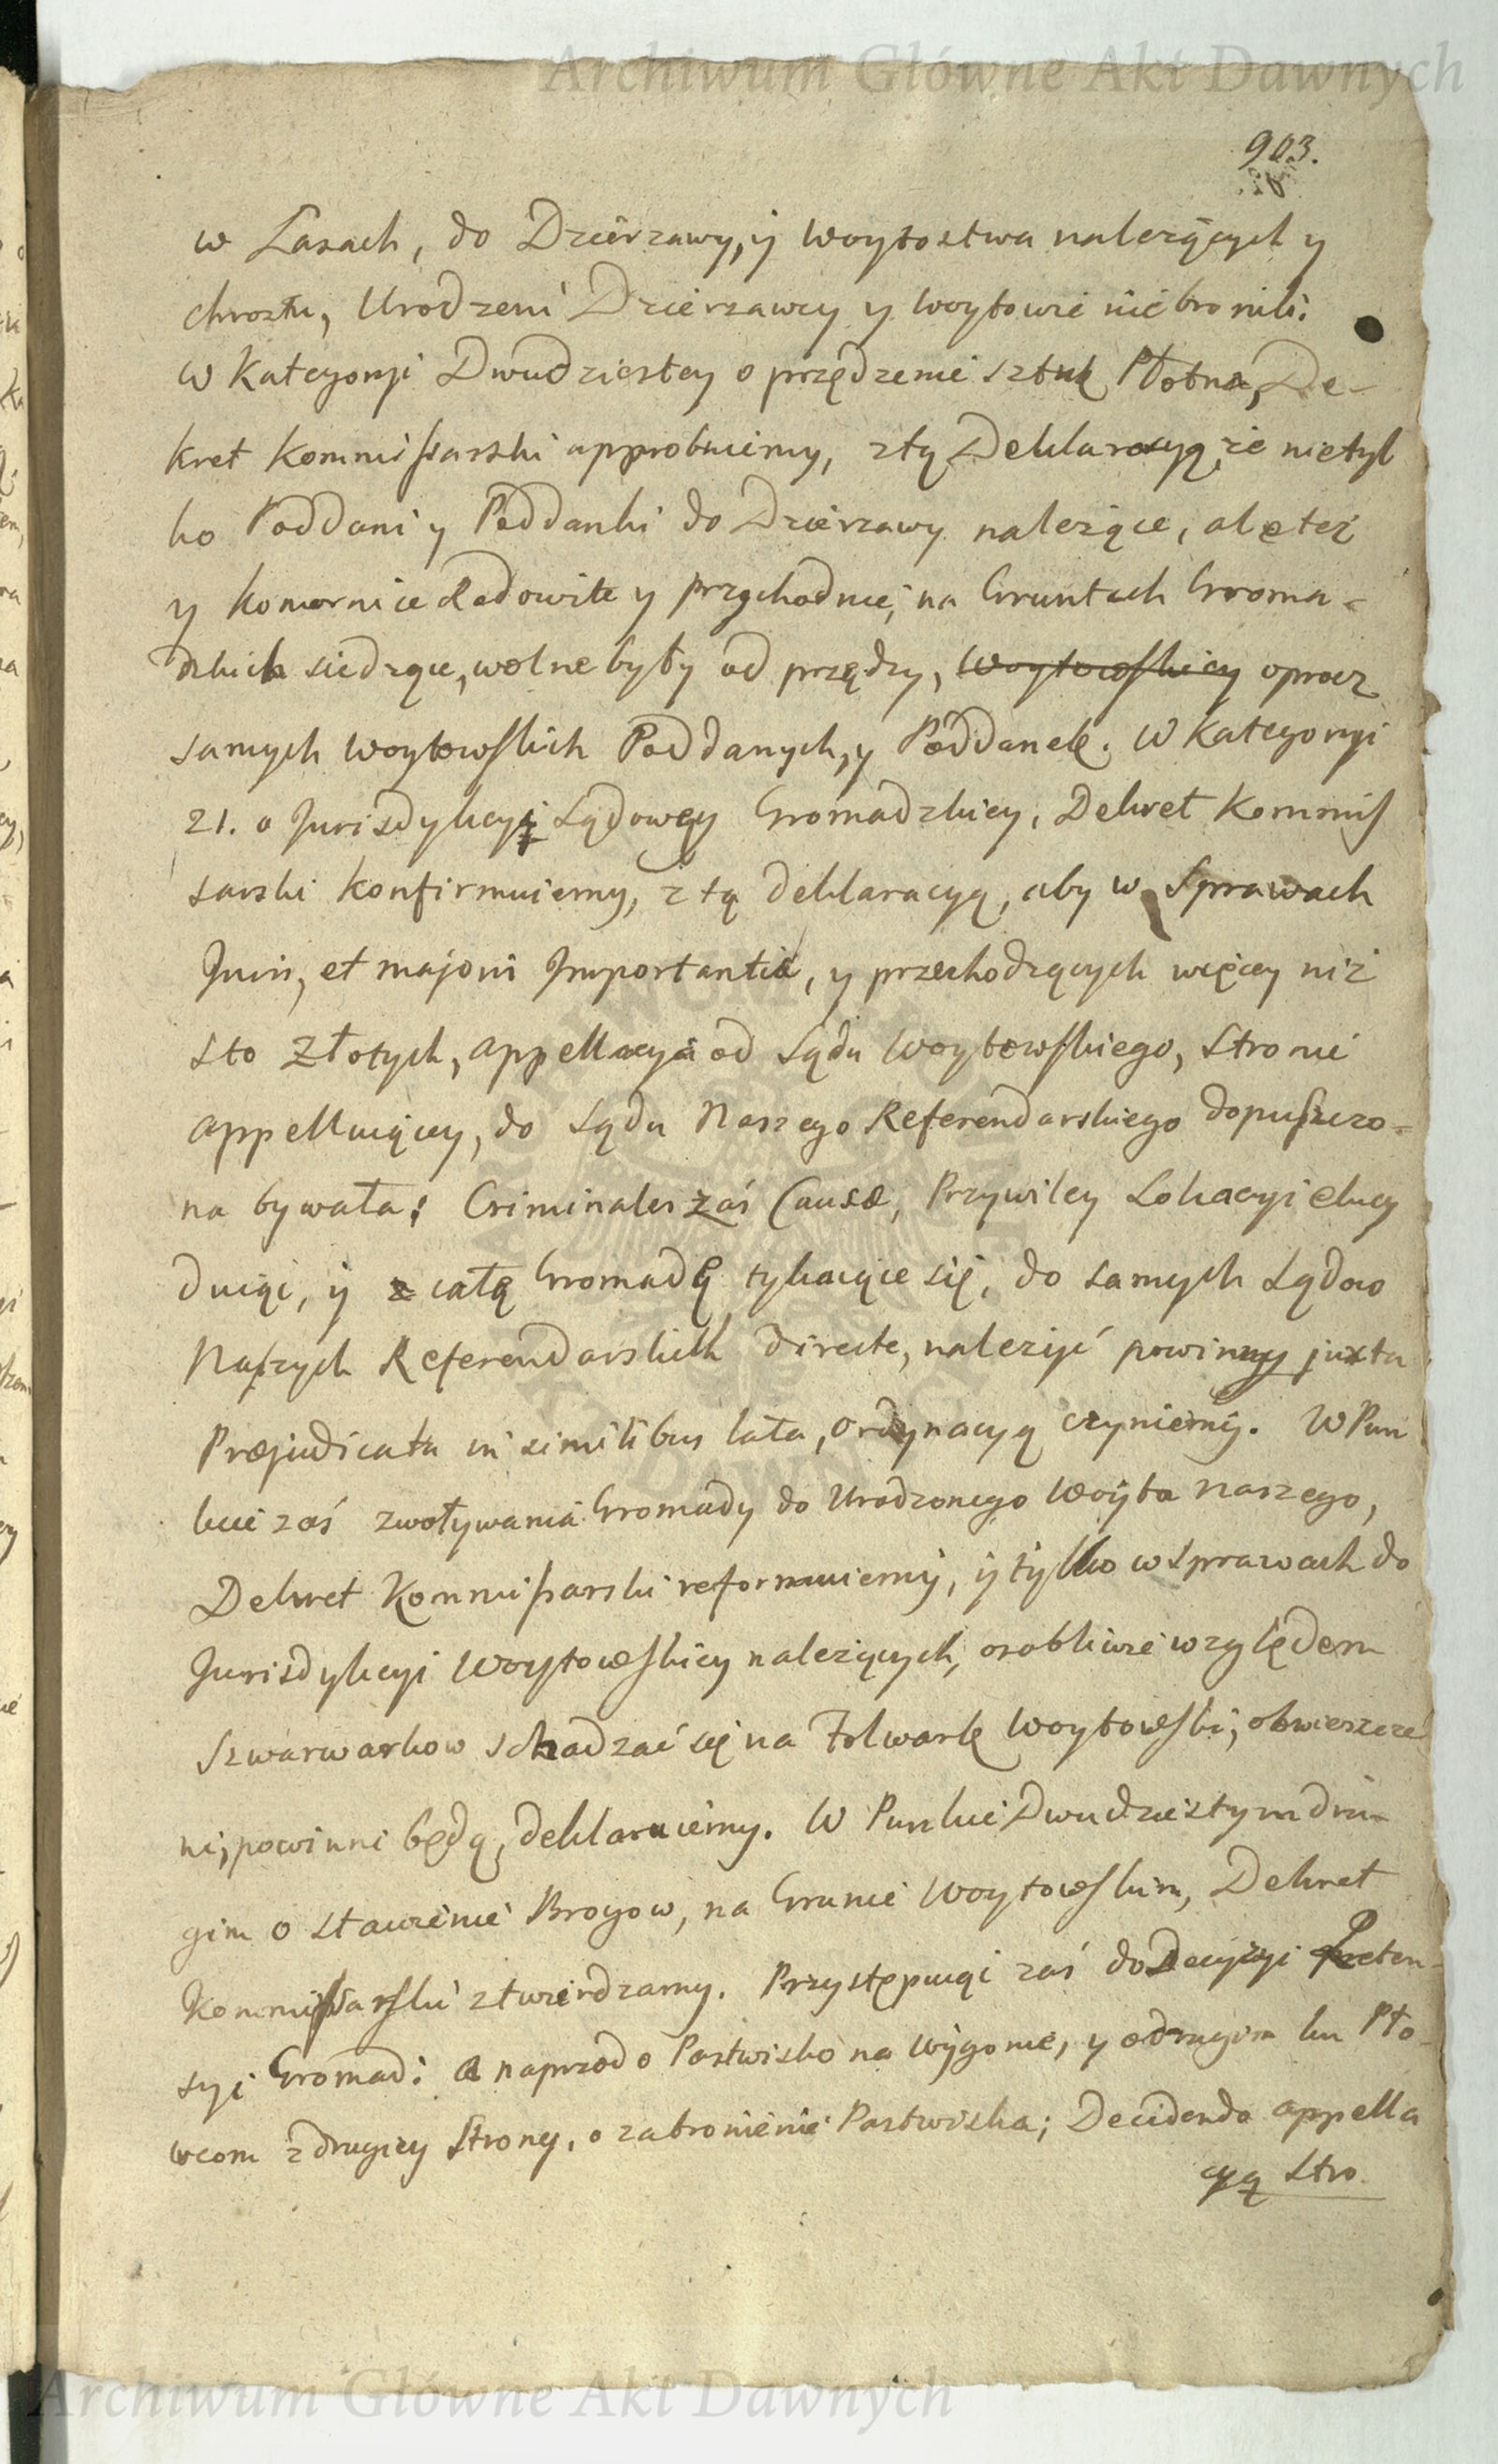 Archiwum Główne Akt Dawnych
903.
w Lasach, do Dzierzawy, y Woytostwa należących y
chrostu, Urodzeni Dzierzawcy y Woytowie nie bronili.
W Kategoryi Dwudziestey o przędzenie sztuk Płotna, De-
kret Kommissarski approbuiemy, z tą Deklaracyą, że nietyl
ko Poddani y Poddanki do Dzierzawy należące, ale też
y Komornice Rodowite y przychodnie, na Gruntach Groma-
dzkich siedzące, wolne były od przędzy, Woytowskiey oprocz
samych Woytowskich Poddanych, y Poddanek. W Kategoryi
21. o Jurisdykcyi Sądowey Gromadzkiey, Dekret Kommis
sarski konfirmuiemy, z tą deklaracyą, aby w Sprawach
Juris, et majoris Importantiæ, y przechodzących więcey niż
sto Złotych, appellacya od Sądu Woytowskiego, stronie
appelluiącey, do Sądu Naszego Referendarskiego dopuszczo-
na bywała; Criminales zaś Causæ, Przywiley Lokacyi eluci
duiąc, y całą Gromadę tykaiące się, do samych Sądow
Naszych Referendarskich directe, należyć powinny juxta
Præjudicata in similibus lata, ordynacyą czyniemy. W Pun
kcie zaś zwoływania Gromady do Urodzonego Woyta naszego,
Dekret Kommissarski reformuiemy, y tylko w sprawach do
Jurisdykcyi Woytowskiey należących, osobliwie względem
Szwarwarkow schadzać się na Folwark Woytowski, obwieszcze
ni, powinni będą, deklaruiemy. W Punkcie Dwudziestym dru-
gim o stawienie Brogow, na Gruncie Woytowskim, Dekret
Kommissarski ztwierdzamy. Przystępuiąc zaś do Decyzyi Preten-
syi Gromad: a naprzod o Pastwisko na Wygonie, y o drugim ku Pło-
wcom z drugiey Strony, o zabronienie Pastwiska; Decidendo appella
cyą Stro.
Archiwum Główne Akt Dawnych